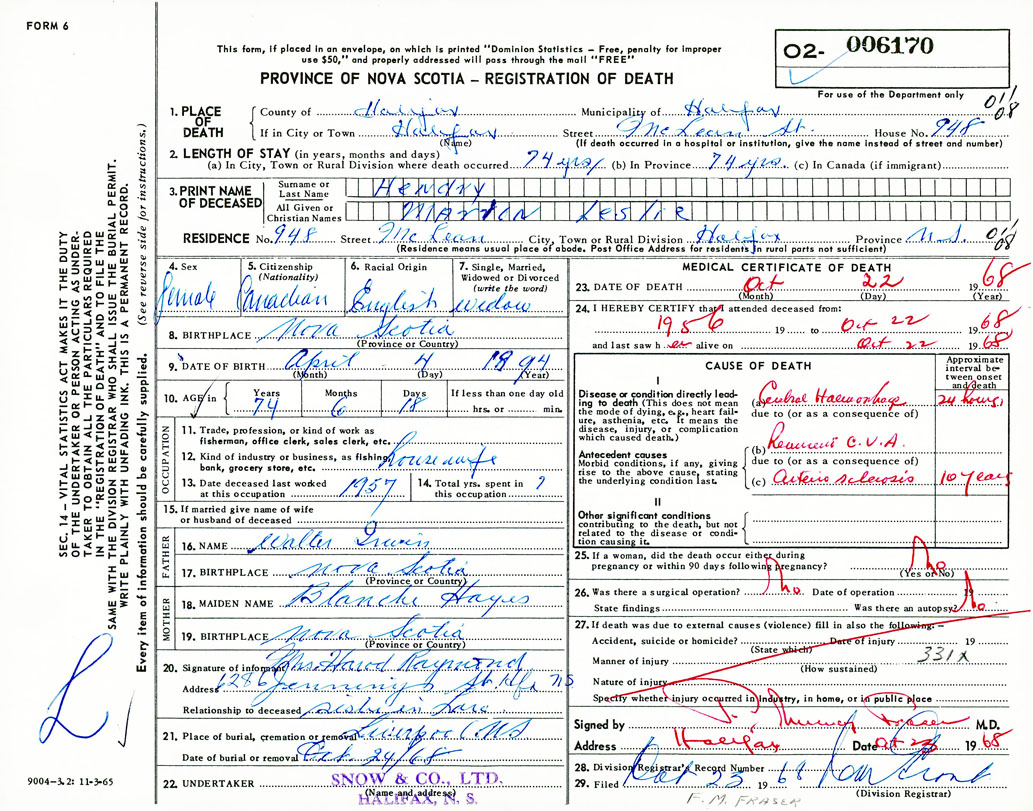 FORM 6
This form, if placed in an envelope, on which is printed "Dominion Statistics – Free, penalty for improper
use $50," and properly addressed will pass through the mail "FREE"
PROVINCE OF NOVA SCOTIA – REGISTRATION OF DEATH
02- 006170
For use of the Department only
1. PLACE OF DEATH
County of Halifax Municipality of Halifax 011/08
If in City or Town Halifax Street McLean St. House No. 948
(Name) (If death occurred in a hospital or institution, give the name instead of street and number)
2. LENGTH OF STAY (in years, months and days)
(a) In City, Town or Rural Division where death occurred 74 yrs. (b) In Province 74 yrs. (c) In Canada (if immigrant)
3. PRINT NAME OF DECEASED
Surname or Last Name Hendry
All Given or Christian Names Marion Leslie
RESIDENCE No. 948 Street McLean City, Town or Rural Division Halifax Province N.S. 011/08
(Residence means usual place of abode. Post Office Address for residents in rural parts not sufficient)
4. Sex Female
5. Citizenship (Nationality) Canadian
6. Racial Origin English
7. Single, Married, Widowed or Divorced (write the word) widow
8. BIRTHPLACE Nova Scotia
(Province or Country)
9. DATE OF BIRTH April 4 1894
(Month) (Day) (Year)
10. AGE in Years 74 Months 6 Days 18 If less than one day old hrs. or min.
OCCUPATION
11. Trade, profession, or kind of work as
fisherman, office clerk, sales clerk, etc.
12. Kind of industry or business, as fishing,
bank, grocery store, etc. housewife
13. Date deceased last worked at this occupation 1957
14. Total yrs. spent in this occupation ?
15. If married give name of wife
or husband of deceased
FATHER
16. NAME Walter Irwin
17. BIRTHPLACE Nova Scotia
(Province or Country)
MOTHER
18. MAIDEN NAME Blanche Hayes
19. BIRTHPLACE Nova Scotia
(Province or Country)
20. Signature of informant Mrs. Harod Raymond
Address 6286 Jennings St. Hfx NS
Relationship to deceased sister in law
21. Place of burial, cremation or removal Liverpool NS
Date of burial or removal Oct. 24/68
22. UNDERTAKER SNOW & CO., LTD.
(Name and address)
HALIFAX, N. S.
MEDICAL CERTIFICATE OF DEATH
23. DATE OF DEATH Oct 22 1968
(Month) (Day) (Year)
24. I HEREBY CERTIFY that I attended deceased from:
1956 19 to Oct 22 1968
and last saw h er alive on Oct 22 1968
CAUSE OF DEATH
Approximate interval between onset and death
I
Disease or condition directly leading to death (This does not mean
the mode of dying, e.g., heart failure, asthenia, etc. It means the
disease, injury, or complication
which caused death.)
(a) Cerebral Haemorrhage 24 hours.
due to (or as a consequence of)
Antecedent causes
Morbid conditions, if any, giving
rise to the above cause, stating
the underlying condition last.
(b) Recurrent C.V.A.
due to (or as a consequence of)
(c) Arteriosclerosis 10 years
II
Other significant conditions
contributing to the death, but not
related to the disease or condition causing it.
25. If a woman, did the death occur either during
pregnancy or within 90 days following pregnancy? No
(Yes or No)
26. Was there a surgical operation? No Date of operation 19
State findings Was there an autopsy? No
27. If death was due to external causes (violence) fill in also the following: –
Accident, suicide or homicide? Date of injury 19
(State which)
Manner of injury 331x
(How sustained)
Nature of injury
Specify whether injury occurred in Industry, in home, or in public place
Signed by Murray Fraser M.D.
Address Halifax Date Oct 23 1968
28. Division Registrar's Record Number
29. Filed Oct 23 1968
(Division Registrar)
F. M. FRASER
SEC. 14 – VITAL STATISTICS ACT MAKES IT THE DUTY
OF THE UNDERTAKER OR PERSON ACTING AS UNDER-
TAKER TO OBTAIN ALL THE PARTICULARS REQUIRED
IN THE "REGISTRATION OF DEATH" AND TO FILE THE
SAME WITH THE DIVISION REGISTRAR WHO SHALL ISSUE THE BURIAL PERMIT.
WRITE PLAINLY WITH UNFADING INK. THIS IS A PERMANENT RECORD.
Every item of information should be carefully supplied. (See reverse side for instructions.)
9004-3.2: 11-3-65